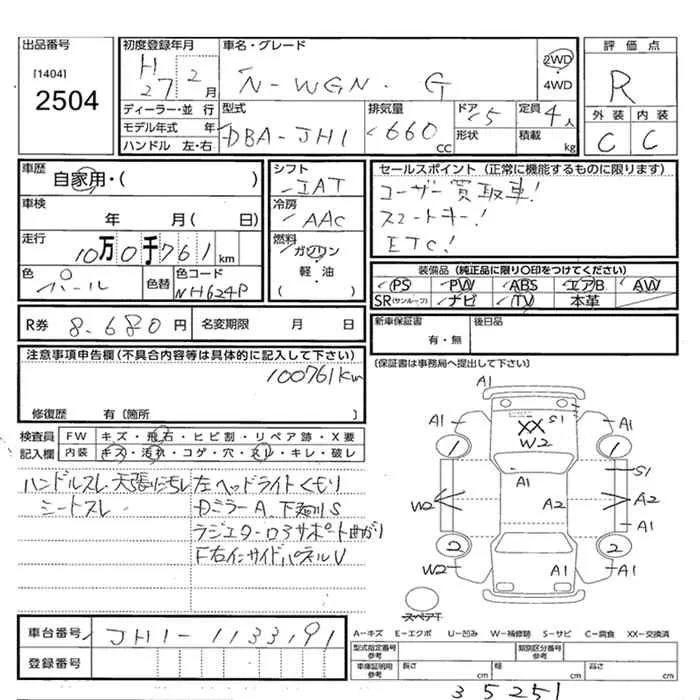 出品番号
[1404]
2504
初度登録年月
H
27 2月
車名・グレード
N-WGN・G
2WD
4WD
評価点
R
外装 内装
C C
ディーラー・並行
モデル年式 年
ハンドル 左・右
型式
DBA-JH1
排気量
660
CC
ドア 5
形状
定員 4人
積載 kg
車歴
自家用・( )
車検
年 月( 日)
走行
10万0千761km
色
パール
色替
色コード
NH624P
シフト
IAT
冷房
AAC
燃料
ガソリン
軽・油
( )
セールスポイント(正常に機能するものに限ります)
ユーザー買取車!
スマートキー!
ETC!
装備品(純正品に限り○印をつけてください)
PS PW ABS エアB AW
SR(サンルーフ) ナビ TV 本革
R券 8.680円 名変期限 月 日
新車保証書
有・無
後日品
(保証書は事務局へ提出して下さい)
注意事項申告欄(不具合内容等は具体的に記入して下さい)
100761km
修復歴 有〔箇所 〕
検査員 FW キズ・飛石・ヒビ割・リペア跡・X要
記入欄 内装 キズ・汚れ・コゲ・穴・スレ・キレ・破レ
ハンドルスレ 天張にちレ 左ヘッドライトくもり
シートスレ Dミラー A、下廻りS
ラジエターロアサポート曲がり
F右インサイドパネルU
A1
A1 XX S1 A1
W2
1 1
S1
W2 A2 A2
A1 A1
2 2
W2 A1 A1
スペアT
車台番号 JH1-1133191
登録番号
A-キズ E-エクボ U-凹み W-補修跡 S-サビ C-腐食 XX-交換済
型式指定番号
参考
類別区分番号
参考
車庫証明用
参考
長さ cm 幅 cm 高さ cm
35251